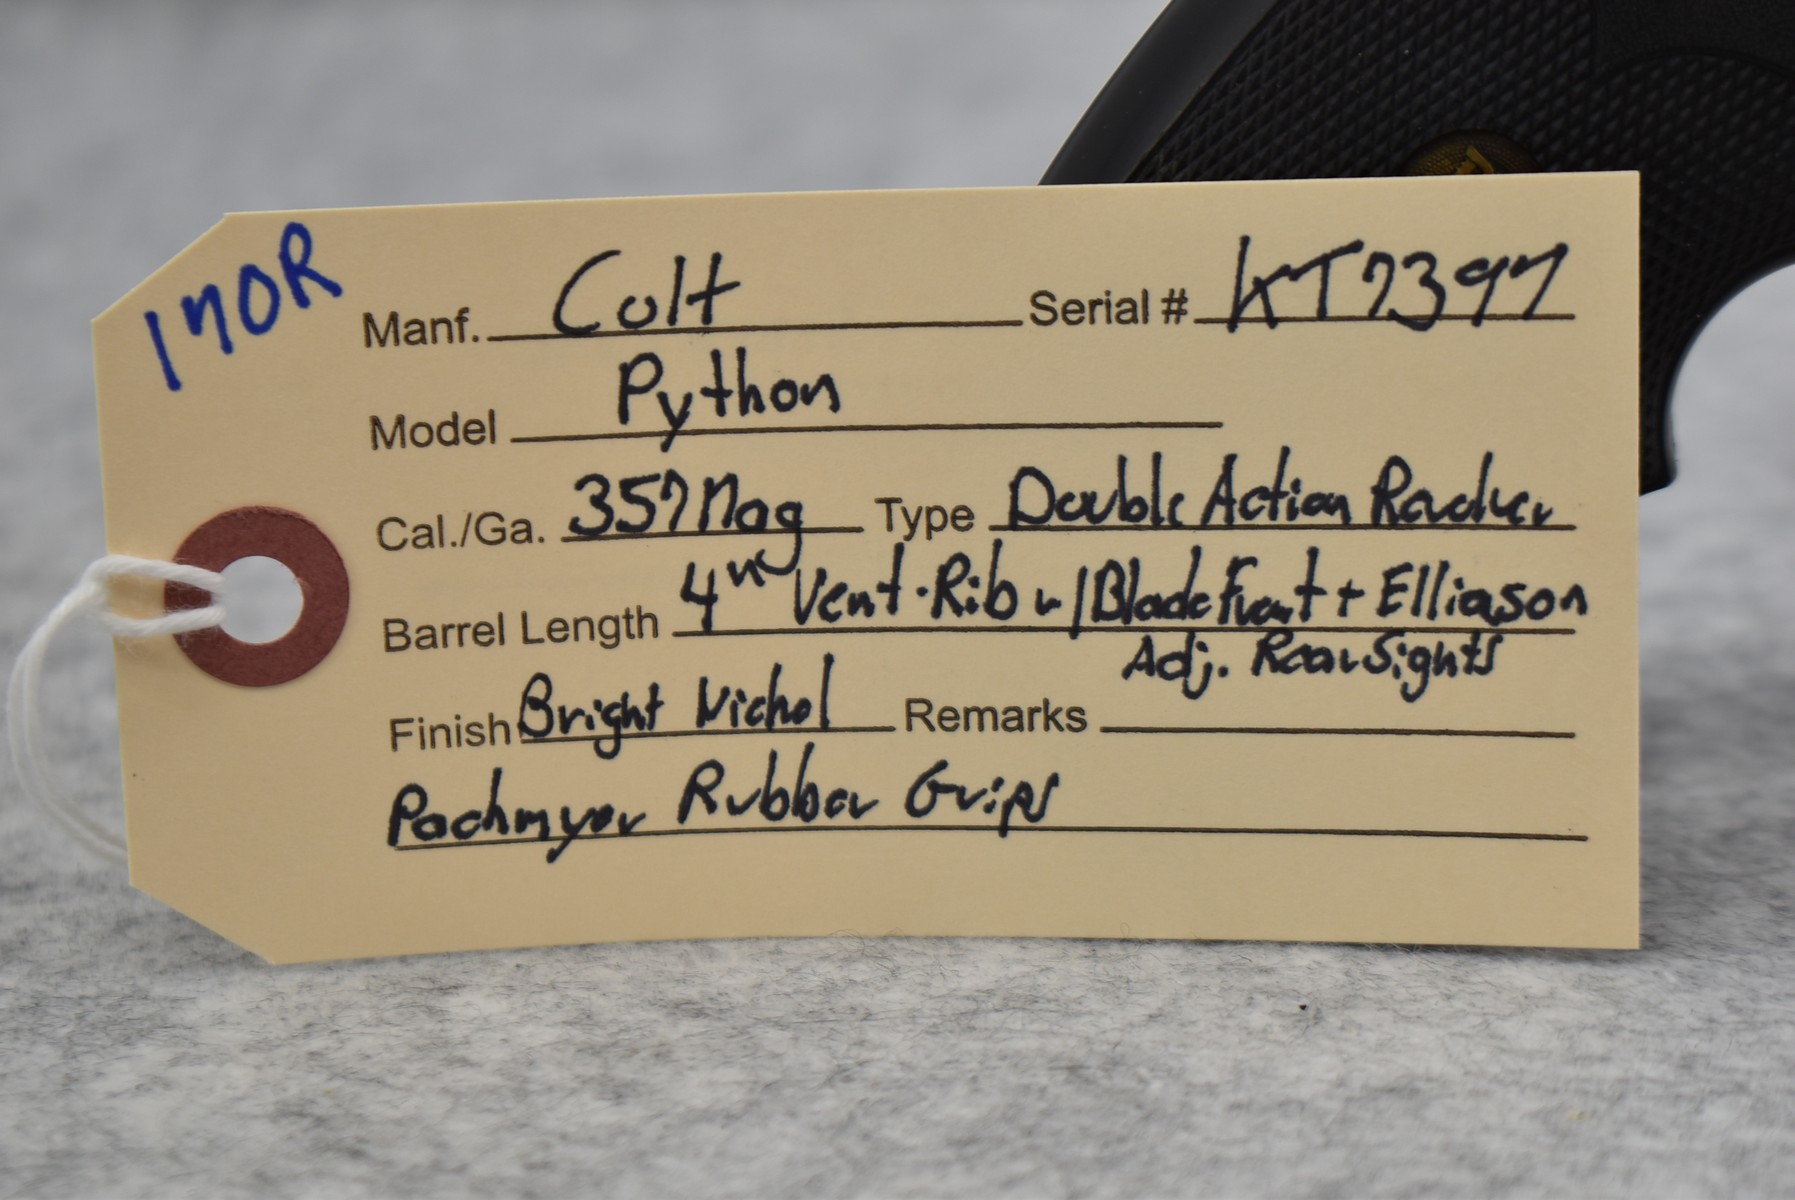 170R
Manf. Colt Serial # KT7397
Model Python
Cal./Ga. 357 Mag Type Double Action
Barrel Length 4" Vent-Rib w/Blade Front + Elliason
Adj. Rear Sights
Finish Bright Nickel Remarks
Pachmyer Rubber Grips